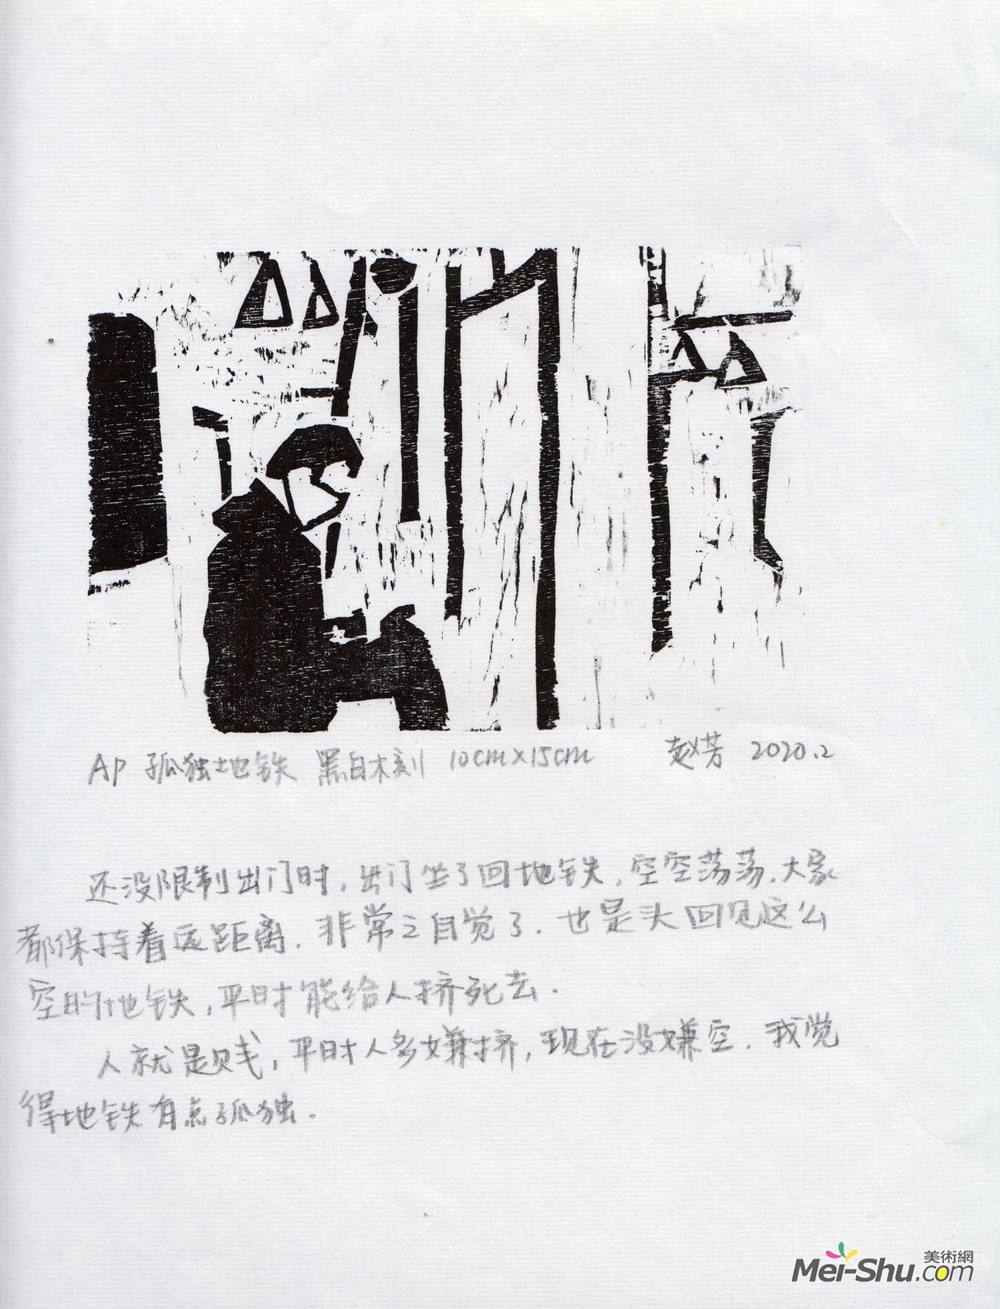 AP 孤独地铁 黑白木刻 10cm×15cm 赵芳 2020.2
还没限制出门时，出门坐了回地铁，空空荡荡.大家
都保持着远距离.非常之自觉了.也是头回见这么
空的地铁，平时能给人挤死去.
人就是贱，平时人多嫌挤，现在没嫌空.我觉
得地铁有点孤独.
美術網
Mei-Shu.com